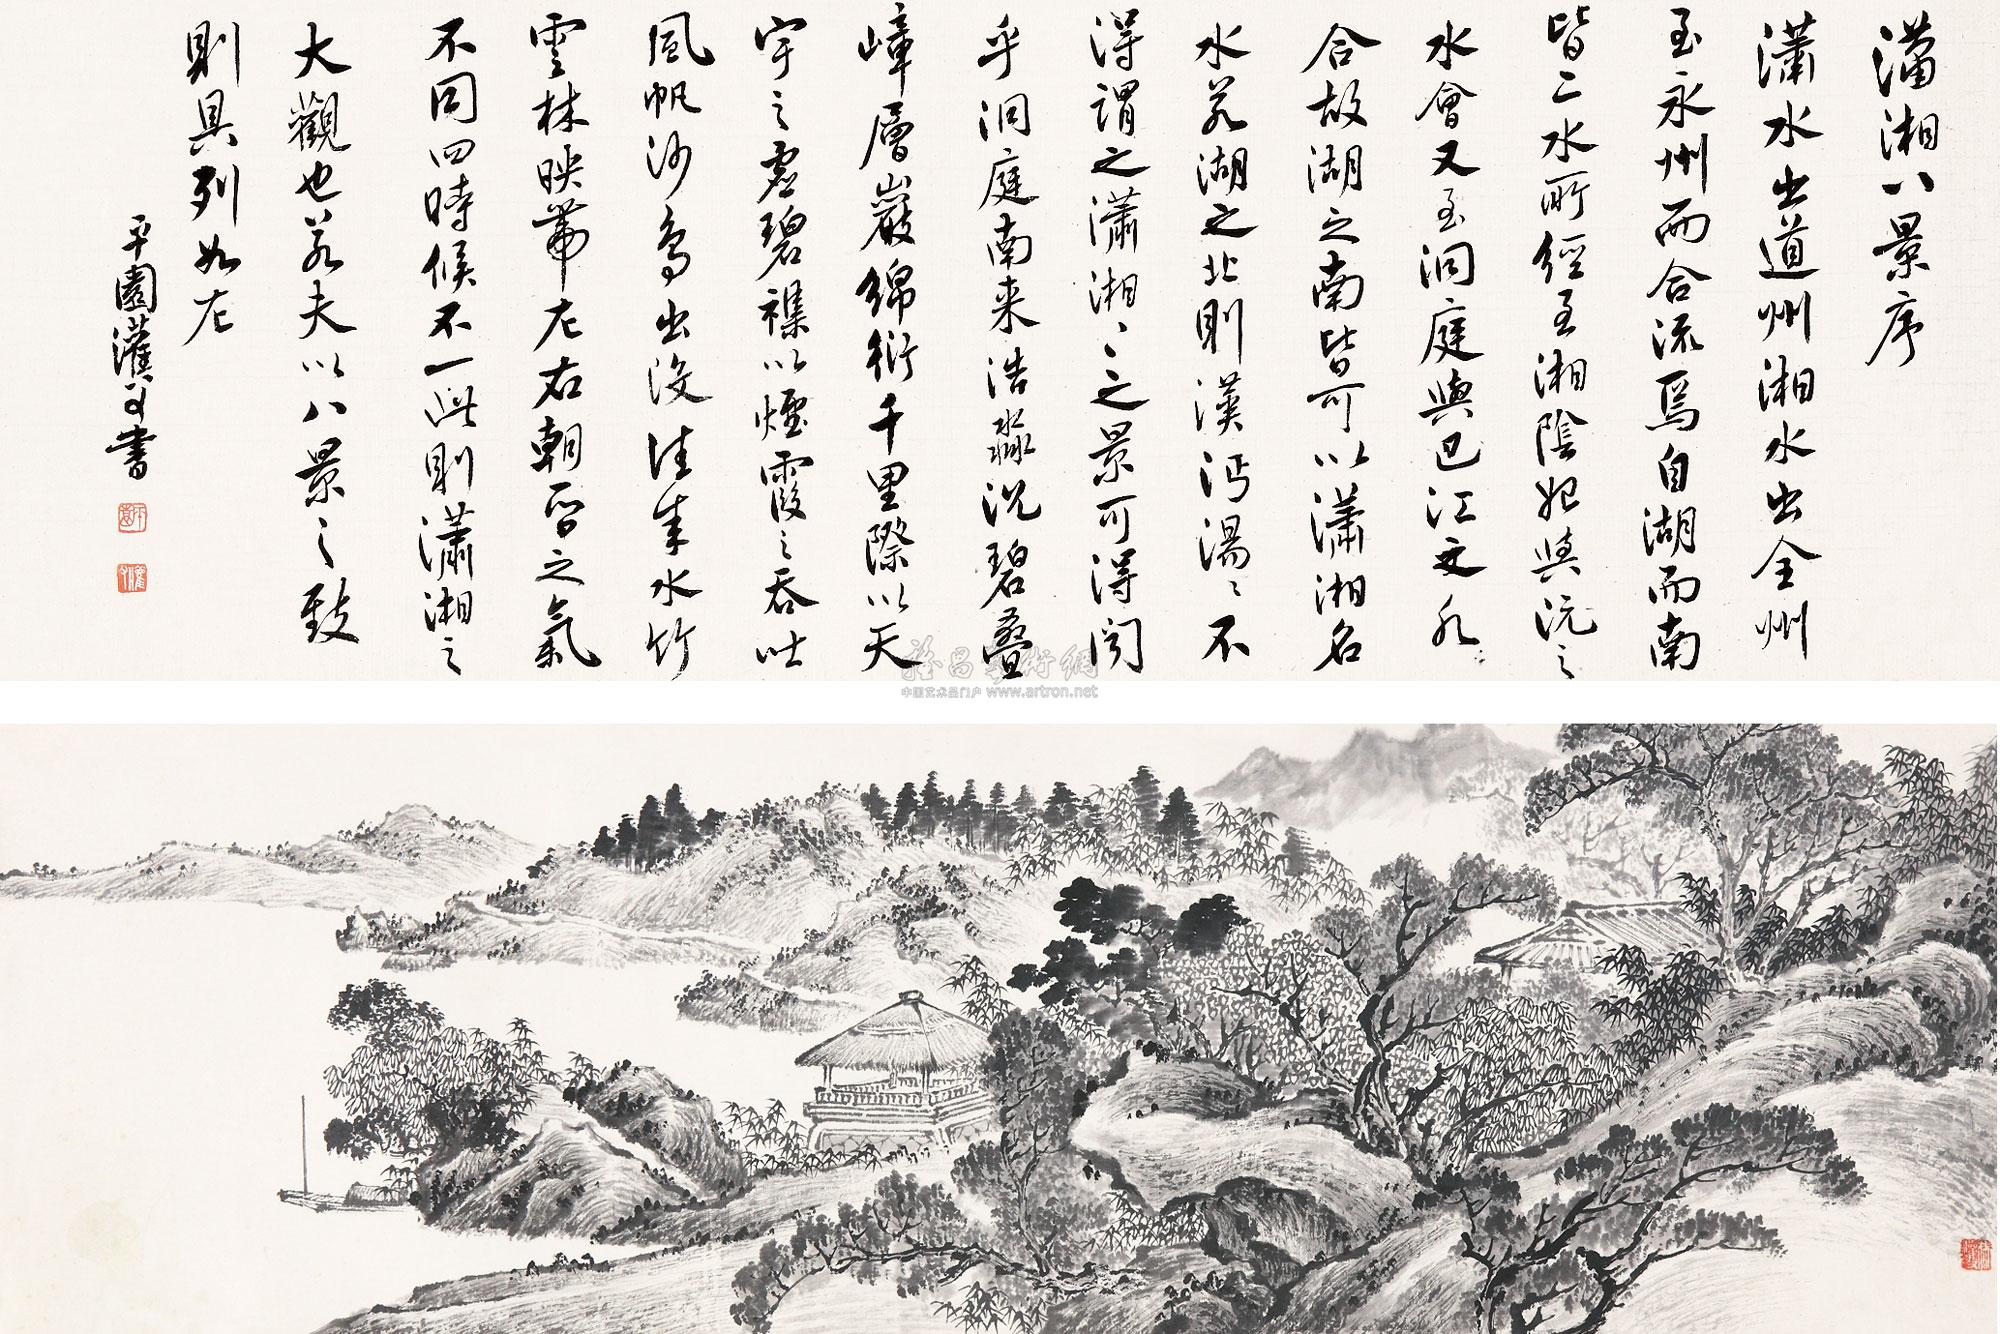 瀟湘八景序
瀟水出道州湘水出全州
至永州而合流焉自湖而南
皆二水所經至湘陰始與沅之
水會又至洞庭與巴江之水
合故湖之南皆可以瀟湘名
水若湖之北則漢沔湯〻不
得謂之瀟湘〻〻之景可得聞
乎洞庭南来浩淼沉碧疊
嶂層巖綿衍千里際以天
宇之虛碧襍以煙霞之吞吐
風帆沙鳥出没往来水竹
雲林映帶左右朝昏之氣
不同四時候不一此則瀟湘之
大觀也若夫以八景之致
則具列如左
平園灌叟書
雅昌藝術網
中国艺术品门户 www.artron.net